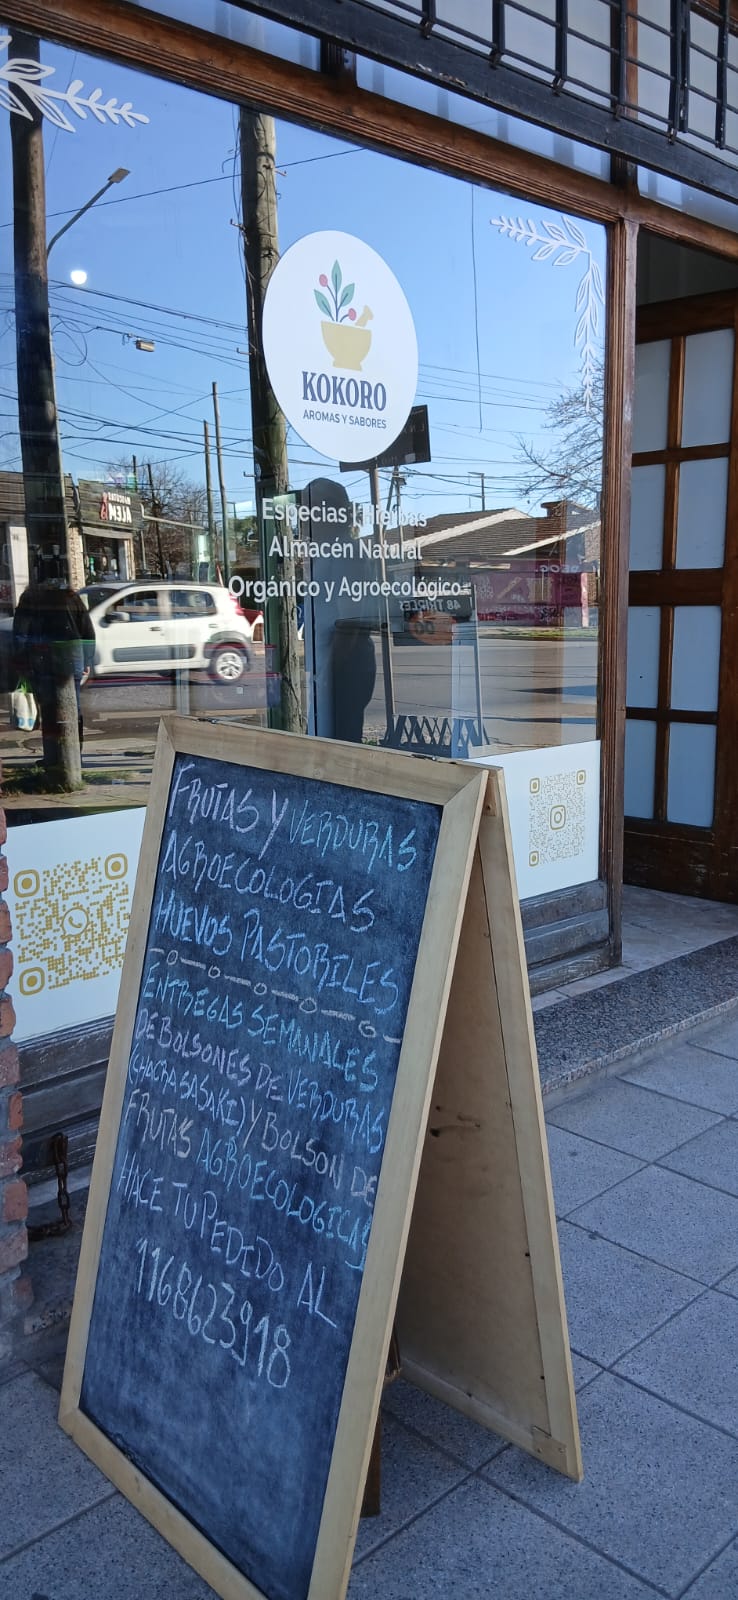 KOKORO
AROMAS Y SABORES
Especias | Hierbas
Almacén Natural
Orgánico y Agroecológico
FRUTAS Y VERDURAS
AGROECOLOGIAS
HUEVOS PASTORILES
ENTREGAS SEMANALES
DE BOLSONES DE VERDURAS
(CHACRA SASAKI) Y BOLSON DE
FRUTAS AGROECOLOGICAS
HACE TU PEDIDO AL
1168623918